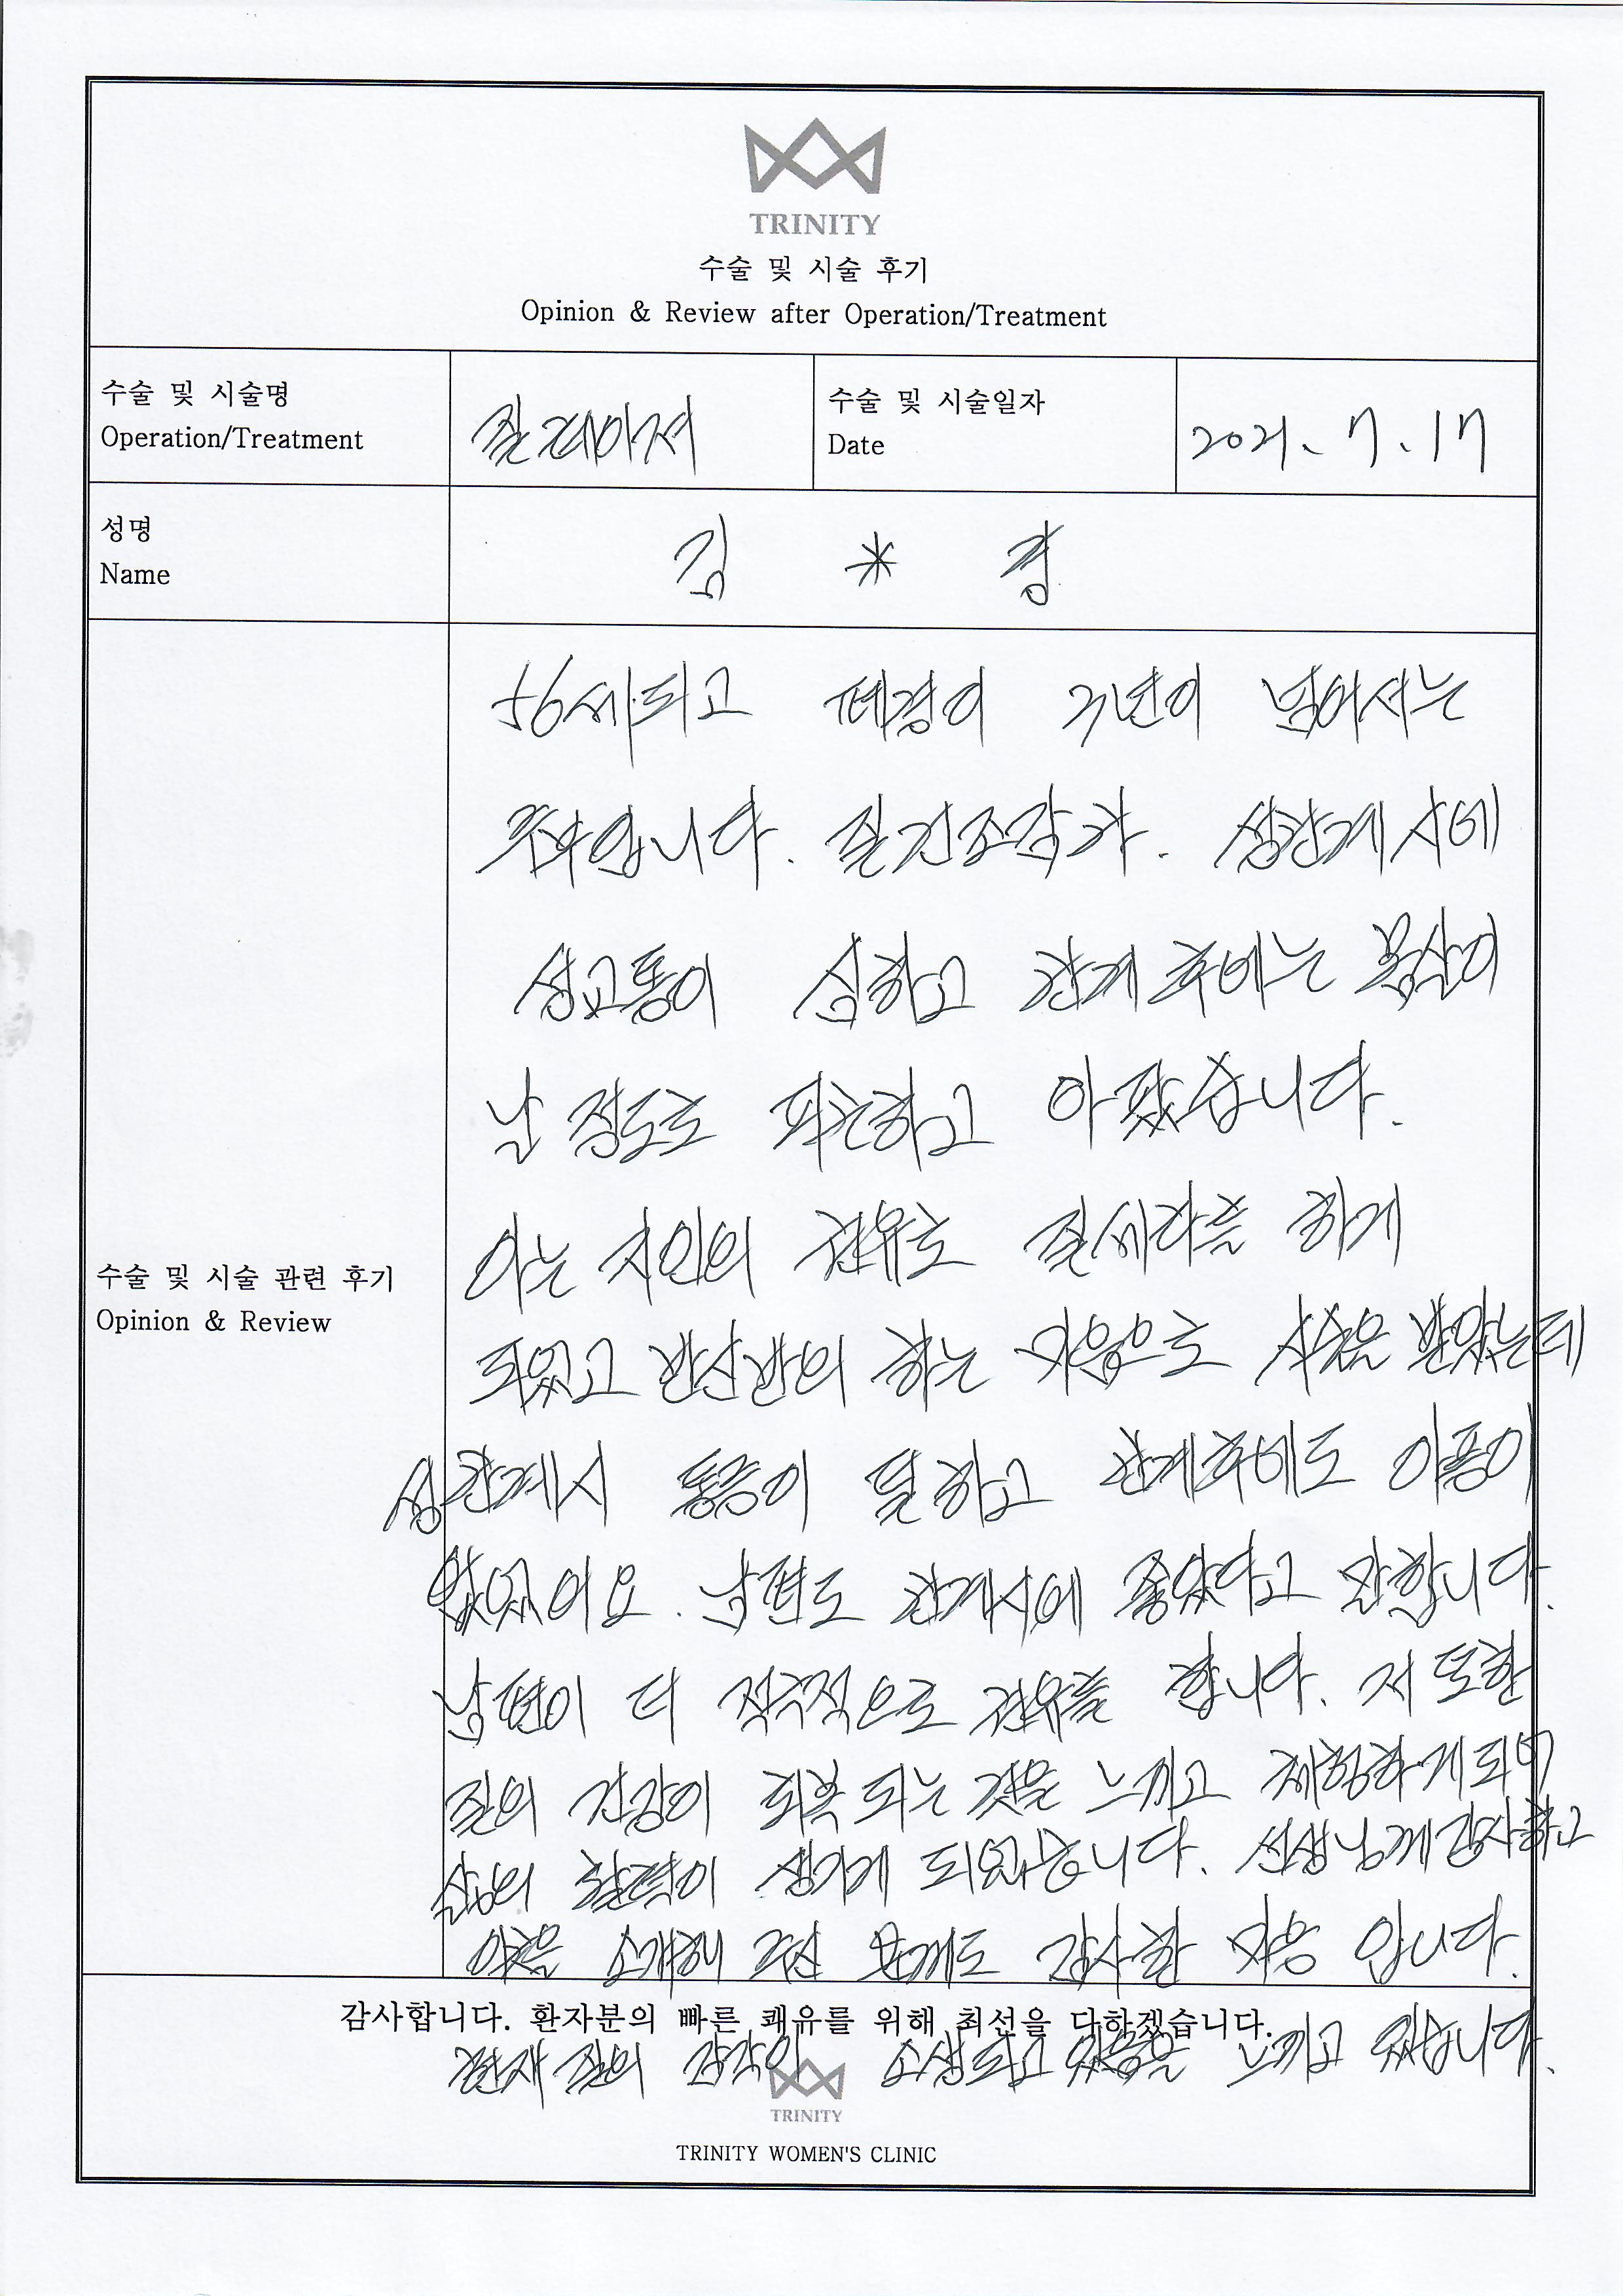 TRINITY
수술 및 시술 후기
Opinion & Review after Operation/Treatment
수술 및 시술명
Operation/Treatment
질레이저
수술 및 시술일자
Date
2021. 7. 17
성명
Name
김 * 경
수술 및 시술 관련 후기
Opinion & Review
56세되고 폐경이 3년이 넘어서는
주부입니다. 질건조감과. 성관계시에
성교통이 심하고 관계후에는 몸살이
날 정도로 피곤하고 아팠습니다.
아는 지인의 권유로 질레이저를 하게
되었고 반신반의 하는 마음으로 시술을 받았는데
성관계시 통증이 덜하고 관계후에도 아픔이
없었어요. 남편도 관계시에 좋았다고 말합니다.
남편이 더 적극적으로 권유를 합니다. 저 또한
질의 건강이 회복 되는 것을 느끼고 체험하게되며
삶의 활력이 생기게 되었습니다. 선생님께감사하고
이곳을 소개해 주신 분께도 감사한 마음 입니다.
감사합니다. 환자분의 빠른 쾌유를 위해 최선을 다하겠습니다.
현재 질의 감각이 소생되고 있음을 느끼고 있습니다.
TRINITY
TRINITY WOMEN'S CLINIC